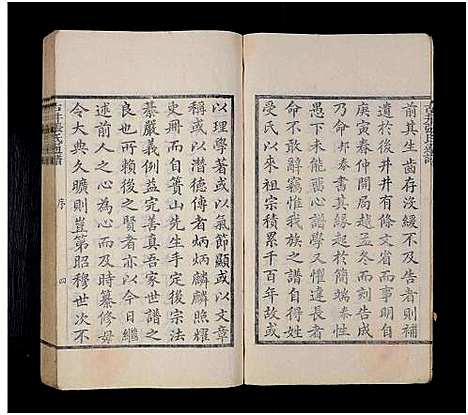 前其生齒存沒緩不及告者則補
遺於後井井有條文省而事明自
庚寅春仲開局越孟冬而刻告成
乃命邦泰書其緣起於簡端泰性
成迂下未悉心譜學又惧違長者
意敢辭竊惟我族之譜昉自
受氏以下宗支積累千百年故或
以理學著或以氣節顯或以文章
稱或以潛德傳者炳炳麟麟照耀
史冊而自簣山先生手定後宗法
綦嚴義例益完善真吾家世譜之
所由獨賴後之賢者以今日繼
述前人之心為心而及時纂修毋
令大典久曠則豈第昭穆世次不
古井張氏通譜
序
四